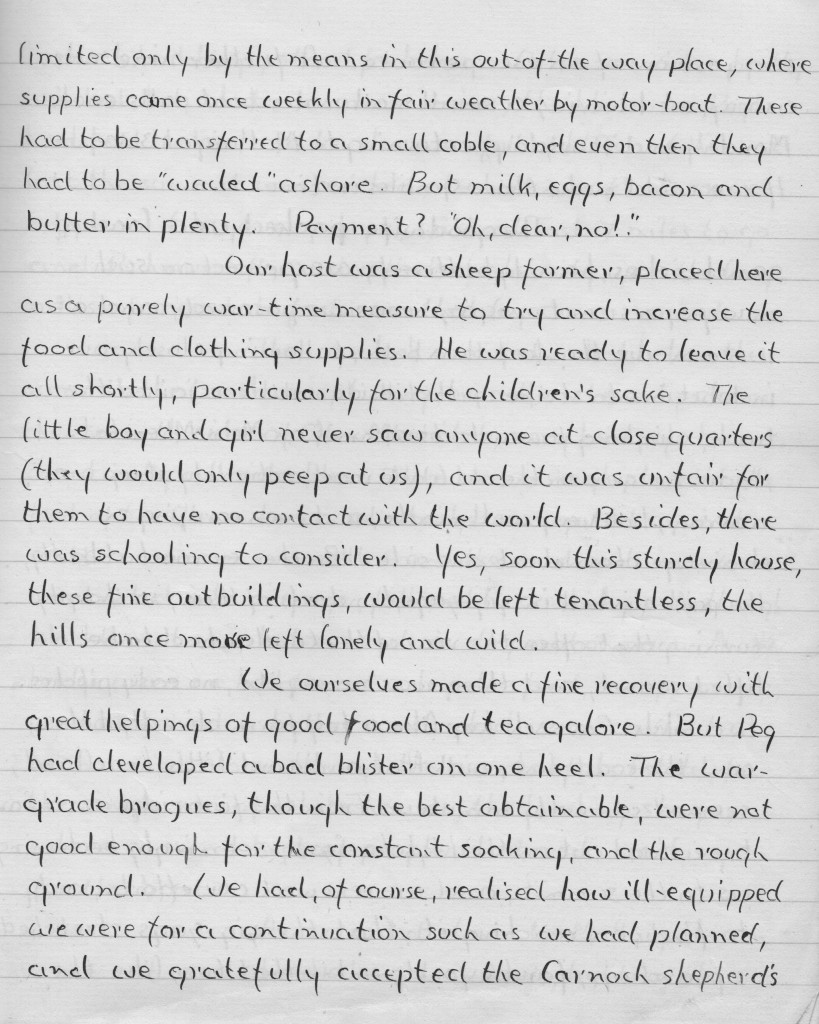 limited only by the means in this out-of-the way place, where
supplies came once weekly in fair weather by motor-boat. These
had to be transferred to a small coble, and even then they
had to be "waded" ashore. But milk, eggs, bacon and
butter in plenty. Payment? "Oh, dear, no!."
Our host was a sheep farmer, placed here
as a purely war-time measure to try and increase the
food and clothing supplies. He was ready to leave it
all shortly, particularly for the children's sake. The
little boy and girl never saw anyone at close quarters
(they would only peep at us), and it was unfair for
them to have no contact with the world. Besides, there
was schooling to consider. Yes, soon this sturdy house,
these fine outbuildings, would be left tenantless, the
hills once more left lonely and wild.
We ourselves made a fine recovery with
great helpings of good food and tea galore. But Peg
had developed a bad blister on one heel. The war-
grade brogues, though the best obtainable, were not
good enough for the constant soaking, and the rough
ground. We had, of course, realised how ill-equipped
we were for a continuation such as we had planned,
and we gratefully accepted the Carnoch shepherd's